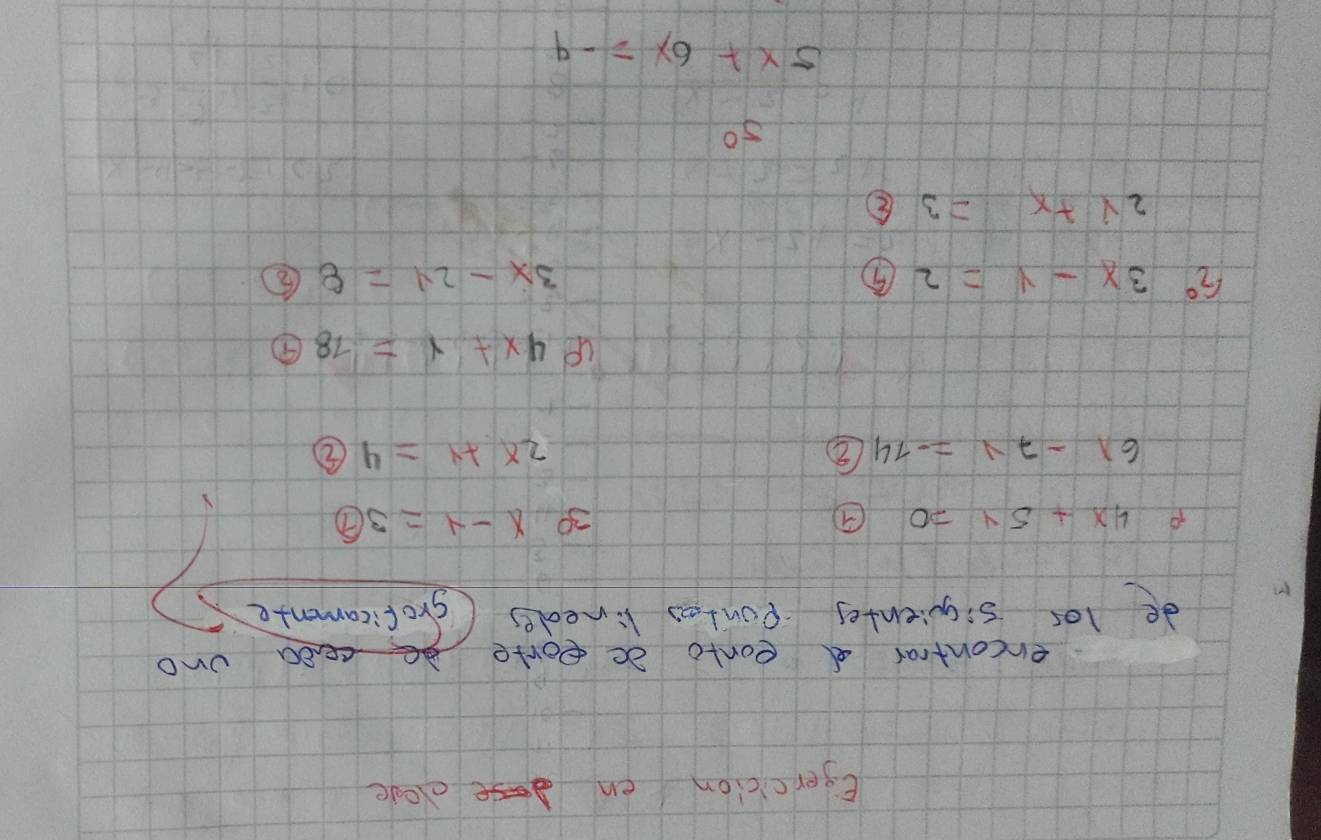 Egercicion en clase
encontrar el conto de corte de cada uno
de los siguientes Puntos lineales graficamente
1º 4x + 5y = 0 ①
6x - 7y = -14 ②
3º x - y = 3 ①
2x + y = 4 ②
2º 3x - y = 2 ①
2y + x = 3 ②
4º 4x + y = 18 ①
3x - 2y = 8 ②
5º
5x + 6x = -9